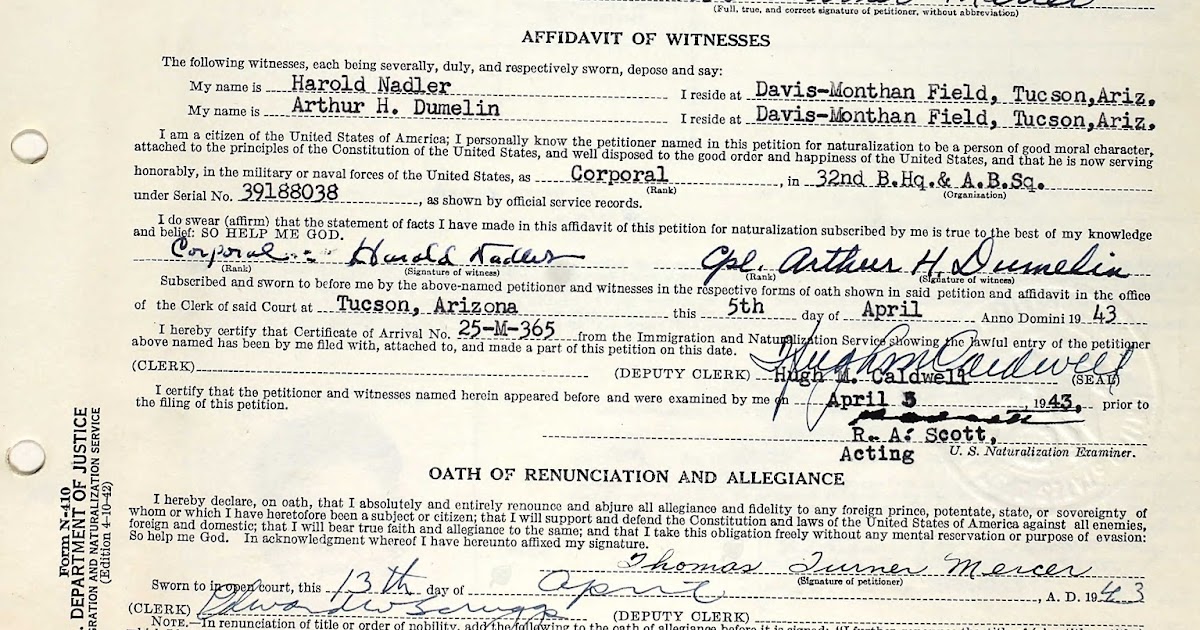 Mercer
(Full, true, and correct signature of petitioner, without abbreviation)
AFFIDAVIT OF WITNESSES
The following witnesses, each being severally, duly, and respectively sworn, depose and say:
My name is Harold Nadler I reside at Davis-Monthan Field, Tucson,Ariz.
My name is Arthur H. Dumelin I reside at Davis-Monthan Field, Tucson,Ariz.
I am a citizen of the United States of America; I personally know the petitioner named in this petition for naturalization to be a person of good moral character,
attached to the principles of the Constitution of the United States, and well disposed to the good order and happiness of the United States, and that he is now serving
honorably, in the military or naval forces of the United States, as Corporal, in 32nd B.Hq.& A.B.Sq.
(Rank) (Organization)
under Serial No. 39188038, as shown by official service records.
I do swear (affirm) that the statement of facts I have made in this affidavit of this petition for naturalization subscribed by me is true to the best of my knowledge
and belief: SO HELP ME GOD.
Corporal Harold Nadler Cpl. Arthur H. Dumelin
(Rank) (Signature of witness) (Rank) (Signature of witness)
Subscribed and sworn to before me by the above-named petitioner and witnesses in the respective forms of oath shown in said petition and affidavit in the office
of the Clerk of said Court at Tucson, Arizona this 5th day of April Anno Domini 19 43
I hereby certify that Certificate of Arrival No. 25-M-365 from the Immigration and Naturalization Service showing the lawful entry of the petitioner
above named has been by me filed with, attached to, and made a part of this petition on this date.
Hugh M Caldwell
(CLERK) (DEPUTY CLERK) Hugh M. Caldwell (SEAL)
I certify that the petitioner and witnesses named herein appeared before and were examined by me on April 5, 1943, prior to
the filing of this petition.
R. A. Scott,
Acting U. S. Naturalization Examiner.
OATH OF RENUNCIATION AND ALLEGIANCE
I hereby declare, on oath, that I absolutely and entirely renounce and abjure all allegiance and fidelity to any foreign prince, potentate, state, or sovereignty of
whom or which I have heretofore been a subject or citizen; that I will support and defend the Constitution and laws of the United States of America against all enemies,
foreign and domestic; that I will bear true faith and allegiance to the same; and that I take this obligation freely without any mental reservation or purpose of evasion:
So help me God. In acknowledgment whereof I have hereunto affixed my signature.
Thomas Turner Mercer
(Signature of petitioner)
Sworn to in open court, this 13th day of April, A. D. 1943
(CLERK) Edward W Scruggs (DEPUTY CLERK)
NOTE.—In renunciation of title or order of nobility, add the following to the oath of allegiance before it is signed: "I further
Form N-410
DEPARTMENT OF JUSTICE
GRATION AND NATURALIZATION SERVICE
(Edition 4-10-42)